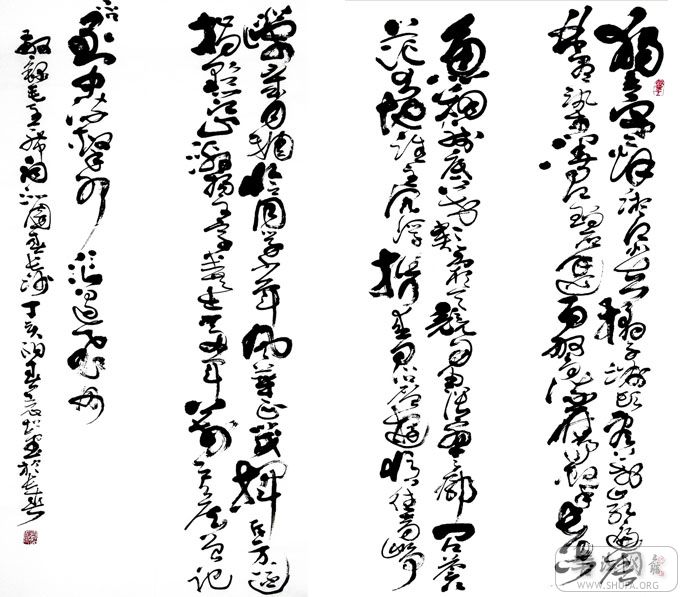 独立寒秋湘江北去橘子洲头看万山红遍层
林尽染漫江碧透百舸争流鹰击长空
鱼翔浅底万类霜天竞自由怅寥廓问苍
茫大地谁主沉浮携来百侣曾游忆往昔峥
嵘岁月稠恰同学少年风华正茂挥斥方遒
指点江山激扬文字粪土当年万户侯曾记
否到中流击水浪遏飞舟
敬录毛主席词沁园春长沙丁亥初春
书法网
WWW.SHUFA.ORG